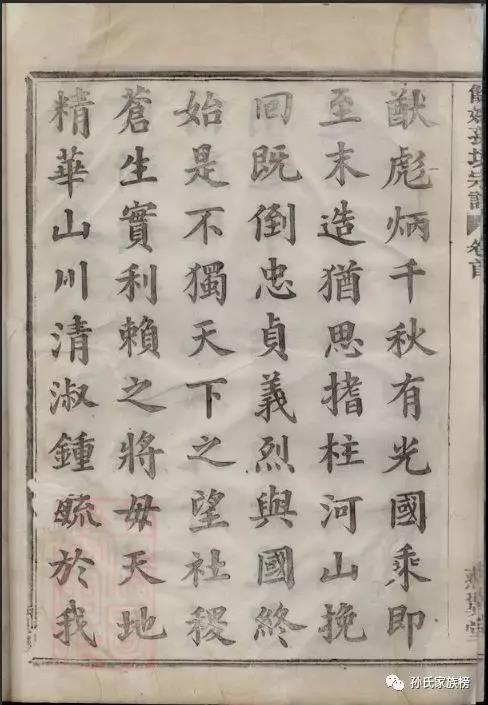 宗譜 卷首
猷彪炳千秋有光國乘即
至末造猶思搘柱河山挽
回既倒忠貞義烈與國終
始是不獨天下之望社稷
蒼生實利賴之將毋天地
精華山川清淑鍾毓於我
孙氏家族榜